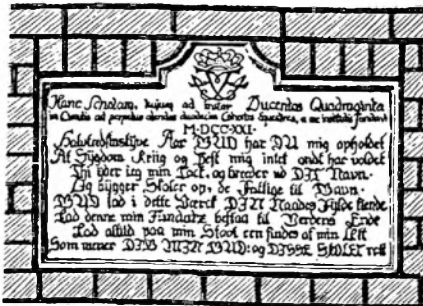 Hanc Scholam, hujus ad instar Ducentas Quadraginta
in ad perpetuo alendas duodecim Cohortes Equestres, a me institutis fundavi
M·DCC·XXI·
Halvtredsinstyve Aar GUD har DU mig opholdet
At Sygdom Kriig og Pest mig intet ondt har voldet
Thi yder ieg min Tack, og breeder ud DIT Navn.
Og bygger Skoler op, de Fattige til Gavn.
GUD lad i dette Værck DIN Naades Fylde kiende
Lad denne min Fundatz bestaa til Verdens Ende
Lad altid paa min Stool een findes af min Ætt
Som meener DIG MIN GUD: og DISSE SKOLER rett